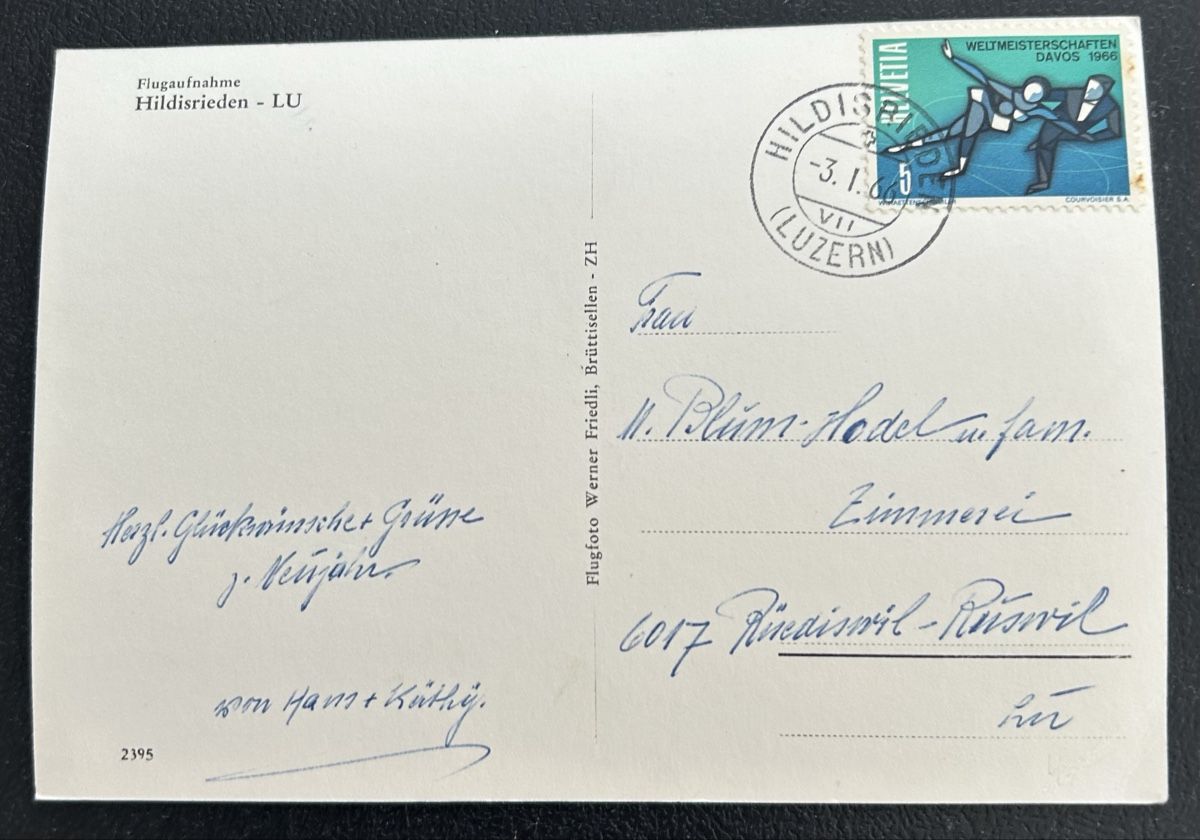 Flugaufnahme
Hildisrieden - LU
HELVETIA
WELTMEISTERSCHAFTEN
DAVOS 1966
5
COURVOISIER S.A.
HILDISRIEDEN
-3. I. 66
VII
(LUZERN)
Flugfoto Werner Friedli, Brüttisellen - ZH
Frau
M. Blum-Hodel u. Fam.
Zimmerei
6017 Rüediswil-Ruswil
Lu
Herzl. Glückwünsche + Grüsse
z. Neujahr.
von Hans + Käthy.
2395